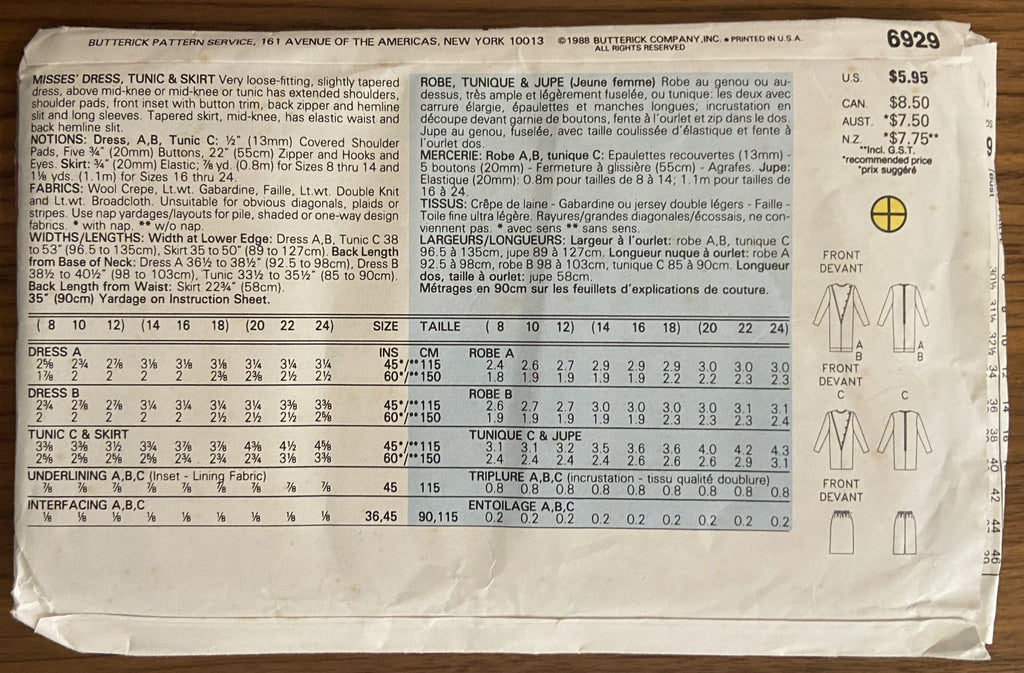 BUTTERICK PATTERN SERVICE, 161 AVENUE OF THE AMERICAS, NEW YORK 10013 ©1988 BUTTERICK COMPANY, INC. • PRINTED IN U.S.A.
ALL RIGHTS RESERVED
6929
MISSES' DRESS, TUNIC & SKIRT Very loose-fitting, slightly tapered
dress, above mid-knee or mid-knee or tunic has extended shoulders,
shoulder pads, front inset with button trim, back zipper and hemline
slit and long sleeves. Tapered skirt, mid-knee, has elastic waist and
back hemline slit.
NOTIONS: Dress, A,B, Tunic C: ½" (13mm) Covered Shoulder
Pads, Five ¾" (20mm) Buttons, 22" (55cm) Zipper and Hooks and
Eyes. Skirt: ¾" (20mm) Elastic; ⅞ yd. (0.8m) for Sizes 8 thru 14 and
1⅛ yds. (1.1m) for Sizes 16 thru 24.
FABRICS: Wool Crepe, Lt.wt. Gabardine, Faille, Lt.wt. Double Knit
and Lt.wt. Broadcloth. Unsuitable for obvious diagonals, plaids or
stripes. Use nap yardages/layouts for pile, shaded or one-way design
fabrics. * with nap. ** w/o nap.
WIDTHS/LENGTHS: Width at Lower Edge: Dress A,B, Tunic C 38
to 53" (96.5 to 135cm), Skirt 35 to 50" (89 to 127cm). Back Length
from Base of Neck: Dress A 36½ to 38½" (92.5 to 98cm), Dress B
38½ to 40½" (98 to 103cm), Tunic 33½ to 35½" (85 to 90cm).
Back Length from Waist: Skirt 22¾" (58cm).
35" (90cm) Yardage on Instruction Sheet.
ROBE, TUNIQUE & JUPE (Jeune femme) Robe au genou ou au-
dessus, très ample et légèrement fuselée, ou tunique: les deux avec
carrure élargie, épaulettes et manches longues; incrustation en
découpe devant garnie de boutons, fente à l'ourlet et zip dans le dos.
Jupe au genou, fuselée, avec taille coulissée d'élastique et fente à
l'ourlet dos.
MERCERIE: Robe A,B, tunique C: Epaulettes recouvertes (13mm) -
5 boutons (20mm) - Fermeture à glissière (55cm) - Agrafes. Jupe:
Elastique (20mm): 0.8m pour tailles de 8 à 14; 1.1m pour tailles de
16 à 24.
TISSUS: Crêpe de laine - Gabardine ou jersey double légers - Faille -
Toile fine ultra légère. Rayures/grandes diagonales/écossais, ne con-
viennent pas. * avec sens ** sans sens.
LARGEURS/LONGUEURS: Largeur à l'ourlet: robe A,B, tunique C
96.5 à 135cm, jupe 89 à 127cm. Longueur nuque à ourlet: robe A
92.5 à 98cm, robe B 98 à 103cm, tunique C 85 à 90cm. Longueur
dos, taille à ourlet: jupe 58cm.
Métrages en 90cm sur les feuillets d'explications de couture.
U.S. $5.95
CAN. $8.50
AUST. *$7.50
N.Z. *$7.75**
**Incl. G.S.T.
*recommended price
*prix suggéré
FRONT
DEVANT
A A
B B
FRONT
DEVANT
C C
FRONT
DEVANT
( 8 10 12) (14 16 18) (20 22 24) SIZE TAILLE ( 8 10 12) (14 16 18) (20 22 24)
DRESS A INS CM ROBE A
2⅝ 2¾ 2⅞ 3⅛ 3⅛ 3⅛ 3¼ 3¼ 3¼ 45*/**115 2.4 2.6 2.7 2.9 2.9 2.9 3.0 3.0 3.0
1⅞ 2 2 2 2 2⅜ 2⅜ 2½ 2½ 60*/**150 1.8 1.9 1.9 1.9 1.9 2.2 2.2 2.3 2.3
DRESS B ROBE B
2¾ 2⅞ 2⅞ 3¼ 3¼ 3¼ 3¼ 3⅜ 3⅜ 45*/**115 2.6 2.7 2.7 3.0 3.0 3.0 3.0 3.1 3.1
2 2 2 2 2 2½ 2½ 2½ 2⅝ 60*/**150 1.9 1.9 1.9 1.9 1.9 2.3 2.3 2.3 2.4
TUNIC C & SKIRT TUNIQUE C & JUPE
3⅜ 3⅜ 3½ 3¾ 3⅞ 3⅞ 4⅜ 4½ 4⅝ 45*/**115 3.1 3.1 3.2 3.5 3.6 3.6 4.0 4.2 4.3
2⅝ 2⅝ 2⅝ 2⅝ 2¾ 2¾ 2¾ 3⅛ 3⅜ 60*/**150 2.4 2.4 2.4 2.4 2.6 2.6 2.6 2.9 3.1
UNDERLINING A,B,C (Inset - Lining Fabric) TRIPLURE A,B,C (incrustation - tissu qualité doublure)
⅞ ⅞ ⅞ ⅞ ⅞ ⅞ ⅞ ⅞ ⅞ 45 115 0.8 0.8 0.8 0.8 0.8 0.8 0.8 0.8 0.8
INTERFACING A,B,C ENTOILAGE A,B,C
⅛ ⅛ ⅛ ⅛ ⅛ ⅛ ⅛ ⅛ ⅛ 36,45 90,115 0.2 0.2 0.2 0.2 0.2 0.2 0.2 0.2 0.2
34
36
38
40
42
44 46